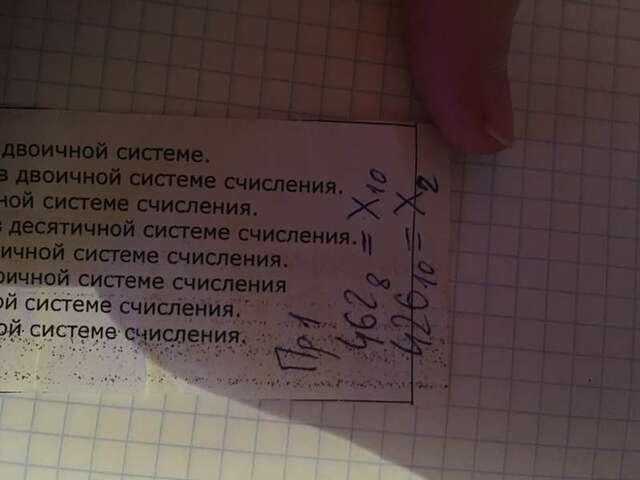 двоичной системе.
в двоичной системе счисления.
ной системе счисления.
в десятичной системе счисления.
ичной системе счисления.
оичной системе счисления
ой системе счисления.
ой системе счисления.
Пр 1
462₈ = X₁₀
426₁₀ = X₂